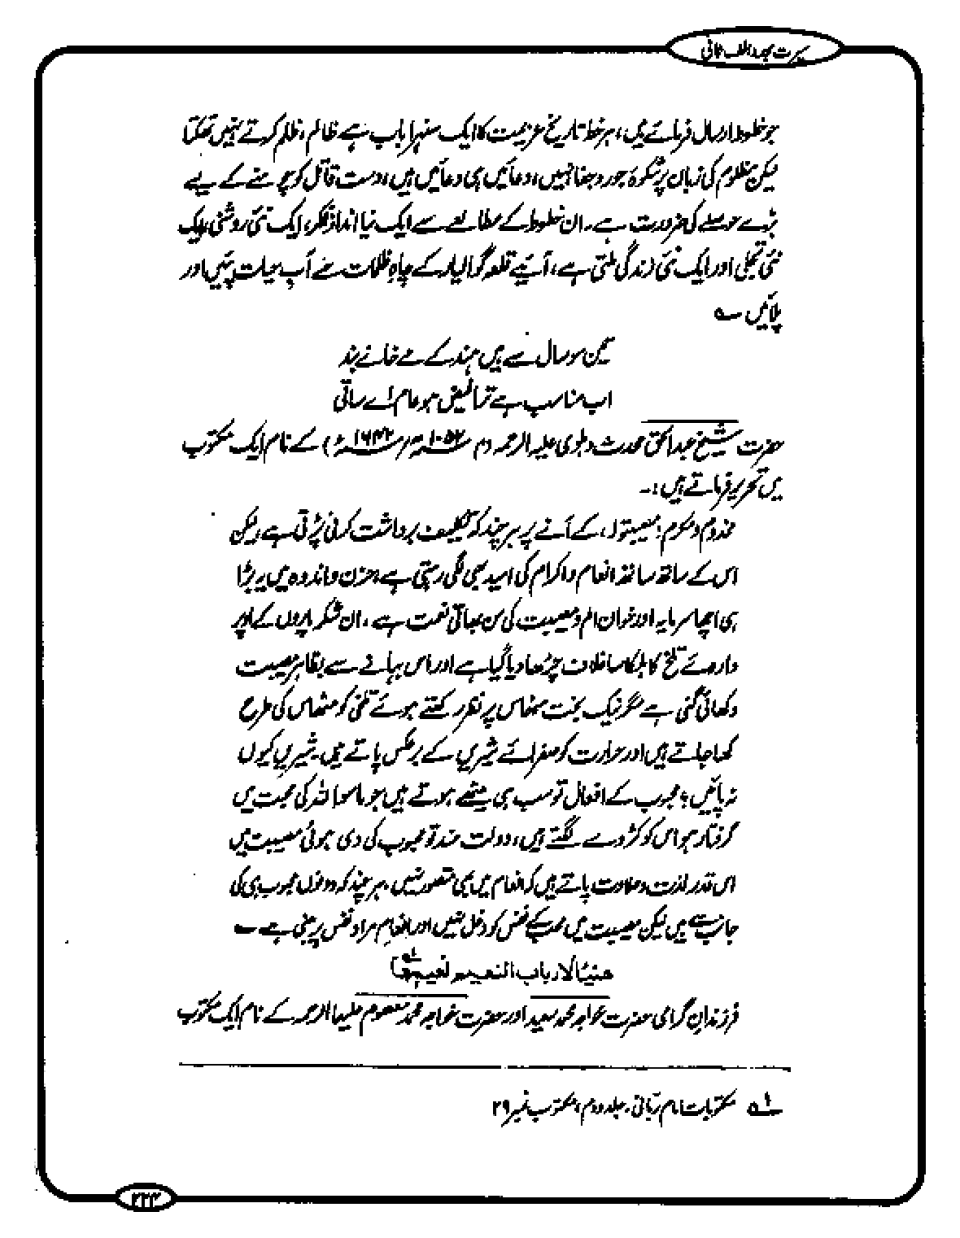 سیرت مجدد الف ثانی
جو خطوط ارسال فرمائے ہیں، ہر خط تاریخ عزیمت کا ایک سنہرا باب ہے ظالم، ظلم کرتے نہیں تھکتا
لیکن مظلوم کی زبان پر شکوۂ جور و جفا نہیں، دعائیں ہی دعائیں ہیں، دست قاتل کو چومنے کے لیے
بڑے حوصلے کی ضرورت ہے۔ ان خطوط کے مطالعے سے ایک نیا انداز فکر، ایک نئی روشنی، ایک
نئی تجلی اور ایک نئی زندگی ملتی ہے، آئیے قلعہ گوالیار کے چاہِ ظلمات سے آبِ حیات پئیں اور
پلائیں ؎
تین سو سال سے ہیں ہند کے مے خانے بند
اب مناسب ہے ترا فیض ہو عام اے ساقی
حضرت شیخ عبدالحق محدث دہلوی علیہ الرحمہ (م ۱۰۵۲ھ/۱۶۴۲ء) کے نام ایک مکتوب
میں تحریر فرماتے ہیں:۔
مخدوم و مکرم! مصیبتوں کے آنے پر ہر چند کہ تکلیف برداشت کرنی پڑتی ہے لیکن
اس کے ساتھ ساتھ انعام و اکرام کی امید بھی لگی رہتی ہے، حزن و اندوہ میں یہ بڑا
ہی اچھا سرمایہ اور خوان الم و مصیبت کی من بھاتی نعمت ہے، ان شکر پاروں کے اوپر
داروئے تلخ کا ہلکا سا غلاف چڑھا دیا گیا ہے اور اس بہانے سے بظاہر مصیبت
دکھائی گئی ہے مگر نیک بخت مٹھاس پر نظر رکھتے ہوئے تلخی کو مٹھاس کی طرح
کھا جاتے ہیں اور حرارت کو صفرائے شیریں کے برعکس پاتے ہیں۔ شیریں کیوں
نہ پائیں؟ محبوب کے افعال تو سب ہی میٹھے ہوتے ہیں جو ماسوا اللہ کی محبت میں
گرفتار ہو اس کو کڑوے لگتے ہیں، دولت مند تو محبوب کی دی ہوئی مصیبت میں
اس قدر لذت و حلاوت پاتے ہیں کہ انعام میں بھی متصور نہیں، ہر چند کہ دونوں محبوب ہی کی
جانب سے ہیں لیکن مصیبت میں محب کے نفس کو دخل نہیں اور انعام مراد نفس پر مبنی ہے ؎
ھنیئا لارباب النعیم نعیمھا ۱؎
فرزندانِ گرامی حضرت خواجہ محمد سعید اور حضرت خواجہ محمد معصوم علیہما الرحمہ کے نام ایک مکتوب
۱؎ مکتوبات امام ربانی، جلد دوم، مکتوب نمبر ۲۹
۲۲۳